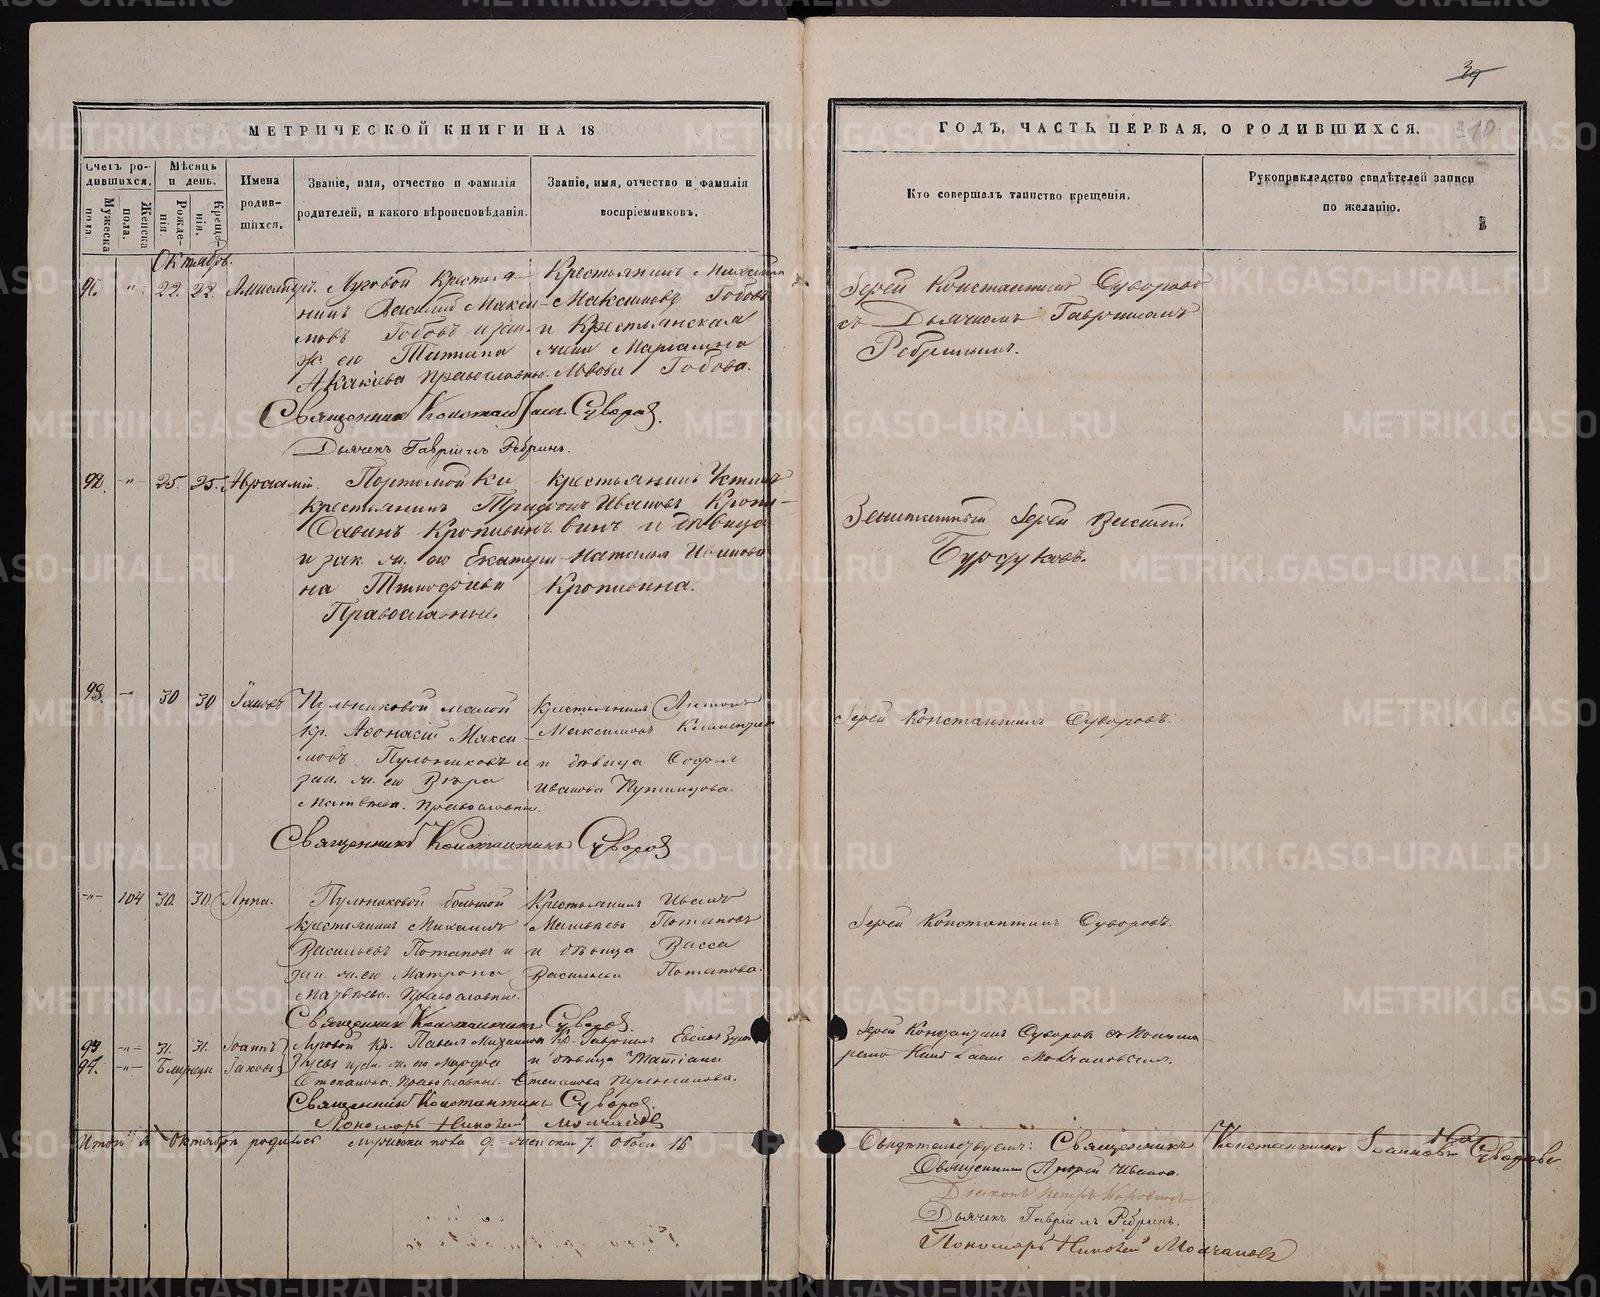 МЕТРИЧЕСКОЙ КНИГИ НА 18
Счетъ ро-
дившихся.
Мужеска
пола.
Женска
пола.
Мѣсяцъ
и день.
Рожде-
нія.
Креще-
нія.
Имена
родив-
шихся.
Званіе, имя, отчество и фамилія
родителей, и какого вѣроисповѣданія.
Званіе, имя, отчество и фамилія
воспріемниковъ.
Октябрь.
91. -„- 22. 22.
Луговой Крестья-
нинъ Василій Макси-
мовъ Гобовъ и зак.
ж. его Татіана
Акакіева православные.
Крестьянинъ
Максимовъ Гобовъ
и Крестьянская
жена Маріамна
Львова Гобова.
Священникъ Константинъ Суворовъ.
Дьячекъ Гавріилъ Ребринъ.
92. -„- 25. 25. Авраамій.
Крестьянинъ Трифонъ
Савинъ Кропивинъ
и зак. ж. его Екатери-
на Тимофіева
Православные.
Крестьянинъ Устинъ
Ивановъ Кропи-
винъ и дѣвица
Наталья Иванова
Кропивина.
93. -„- 30 30 Іаковъ
Пульниковой малой
кр. Аѳонасій Макси-
мовъ Пульниковъ и
зак. ж. его Вѣра
Матвѣева. Православные.
Крестьянинъ Антонъ
Максимовъ
и дѣвица Софья
Иванова
Священникъ Константинъ Суворовъ
-„- 104 30. 30. Анна.
Пульниковой большой
крестьянинъ Михаилъ
Васильевъ Потаповъ и
зак. ж. его Матрона
Матвѣева. Православные.
Крестьянинъ Иванъ
Матвѣевъ Потаповъ
и дѣвица Васса
Васильева Потапова.
Священникъ Константинъ Суворовъ.
93 -„- 31. 31. Іоаннъ
94. -„- Близнецы Іаковъ
Луговой Кр. Павелъ Михайловъ
и зак. ж. его Марѳа
Степанова. Православные.
Кр. Гавріилъ
и дѣвица Татіана
Степанова Пульникова.
Священникъ Константинъ Суворовъ.
Пономарь Николай Молчановъ
Итого въ Октябрѣ родилось мужеска пола 9. женска 7. обоего 16
39
ГОДЪ, ЧАСТЬ ПЕРВАЯ, О РОДИВШИХСЯ.
310
Кто совершалъ таинство крещенія.
Рукоприкладство свидѣтелей записи
по желанію.
Іерей Константинъ Суворовъ
съ Дьячкомъ Гавріиломъ
Ребринымъ.
Заштатный Іерей Василій
Бурдуковъ.
Іерей Константинъ Суворовъ.
Іерей Константинъ Суворовъ.
Іерей Константинъ Суворовъ съ Понома
ремъ Николаемъ Молчановымъ.
Свидѣтельствуемъ: Священникъ Константинъ Іоанновъ Суворовъ
Священникъ Андрей Ивановъ.
Діаконъ Петръ Коровинъ
Дьячекъ Гавріилъ Ребринъ.
Пономарь Николай Молчановъ
METRIKI.GASO-URAL.RU